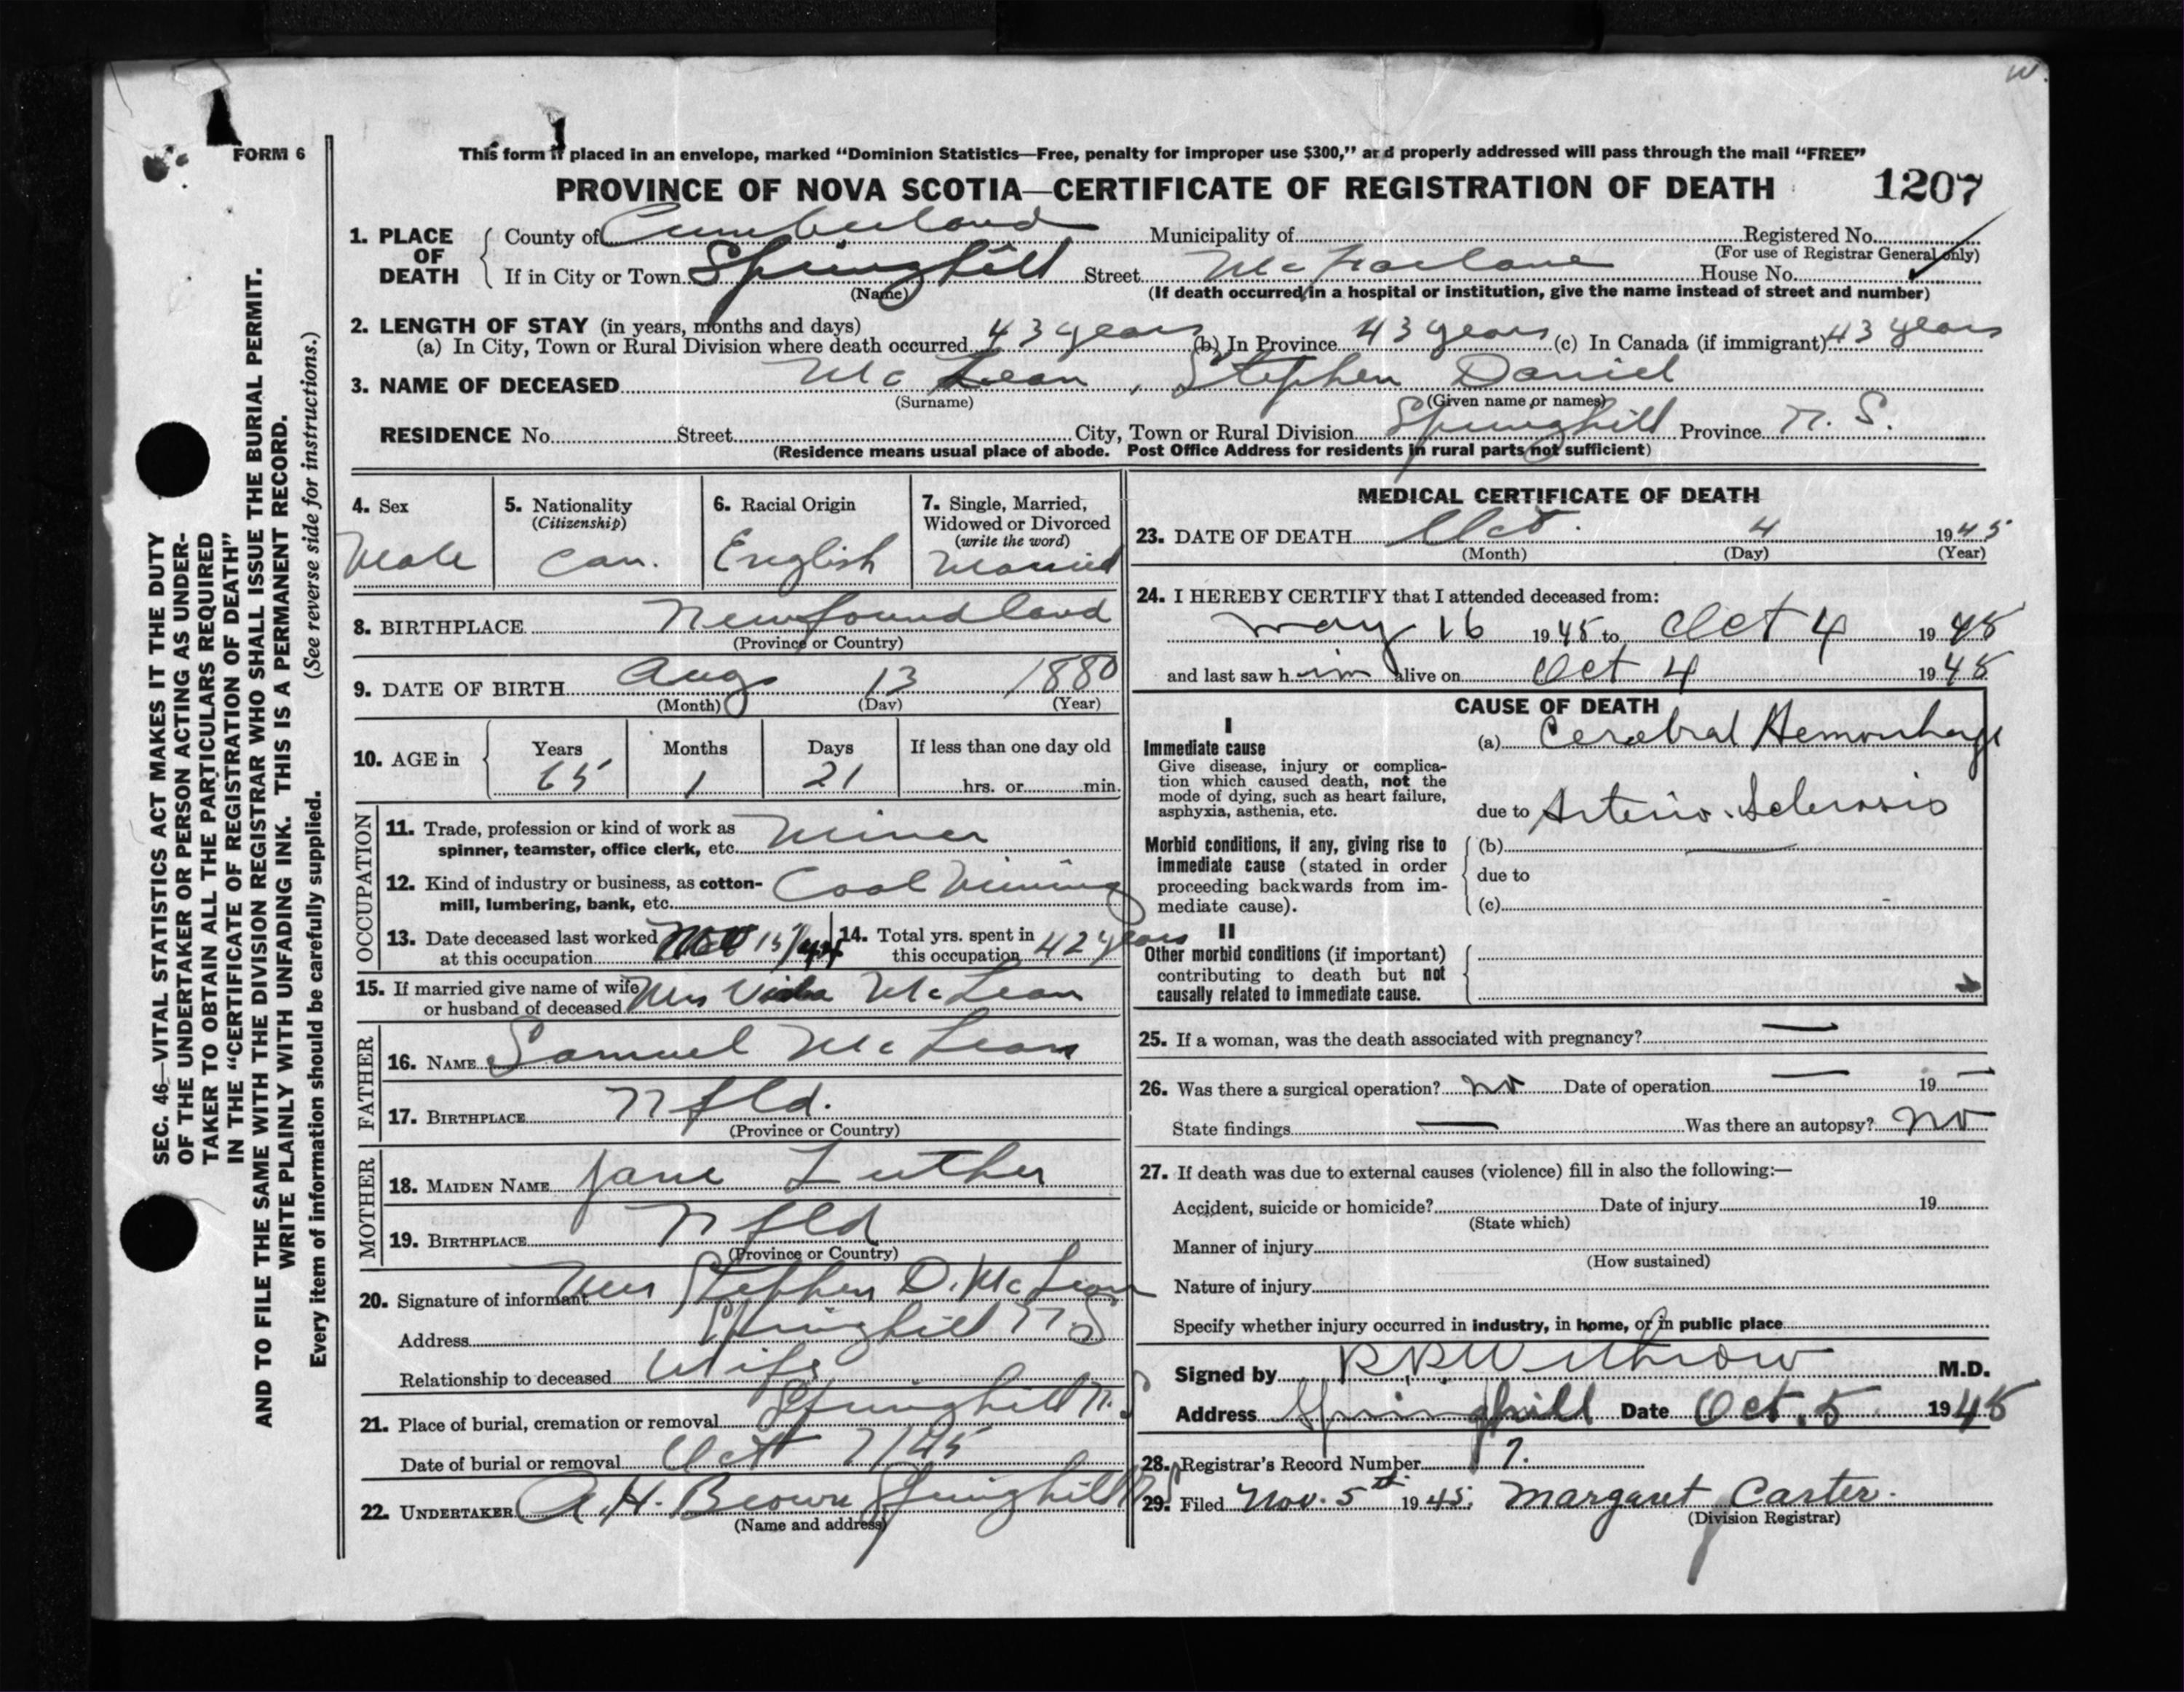 W.
FORM 6
This form if placed in an envelope, marked “Dominion Statistics—Free, penalty for improper use $300,” and properly addressed will pass through the mail “FREE”
PROVINCE OF NOVA SCOTIA—CERTIFICATE OF REGISTRATION OF DEATH 1207
1. PLACE OF DEATH
County of Cumberland Municipality of Registered No.
(For use of Registrar General only)
If in City or Town Springhill Street McFarlane House No.
(Name) (If death occurred in a hospital or institution, give the name instead of street and number)
2. LENGTH OF STAY (in years, months and days)
(a) In City, Town or Rural Division where death occurred 43 years (b) In Province 43 years (c) In Canada (if immigrant) 43 years
3. NAME OF DECEASED McLean, Stephen Daniel
(Surname) (Given name or names)
RESIDENCE No. Street City, Town or Rural Division Springhill Province N. S.
(Residence means usual place of abode. Post Office Address for residents in rural parts not sufficient)
4. Sex Male
5. Nationality (Citizenship) Can.
6. Racial Origin English
7. Single, Married, Widowed or Divorced (write the word) Married
8. BIRTHPLACE Newfoundland
(Province or Country)
9. DATE OF BIRTH Aug 13 1880
(Month) (Day) (Year)
10. AGE in Years 65 Months 1 Days 21 If less than one day old hrs. or min.
OCCUPATION
11. Trade, profession or kind of work as
spinner, teamster, office clerk, etc. Miner
12. Kind of industry or business, as cotton-
mill, lumbering, bank, etc. Coal Mining
13. Date deceased last worked
at this occupation 15/44
14. Total yrs. spent in
this occupation 42 years
15. If married give name of wife
or husband of deceased Mrs McLean
FATHER
16. NAME Samuel McLean
17. BIRTHPLACE Nfld.
(Province or Country)
MOTHER
18. MAIDEN NAME Jane Luther
19. BIRTHPLACE Nfld
(Province or Country)
20. Signature of informant Mrs Stephen D. McLean
Address Springhill N S
Relationship to deceased Wife
21. Place of burial, cremation or removal Springhill N. S
Date of burial or removal Oct 7/45
22. UNDERTAKER A. H. Brown Springhill N S
(Name and address)
MEDICAL CERTIFICATE OF DEATH
23. DATE OF DEATH Oct. 4 1945
(Month) (Day) (Year)
24. I HEREBY CERTIFY that I attended deceased from:
May 16 1945 to Oct 4 1945
and last saw him alive on Oct 4 1945
CAUSE OF DEATH
I
Immediate cause
Give disease, injury or complica-
tion which caused death, not the
mode of dying, such as heart failure,
asphyxia, asthenia, etc.
(a) Cerebral Hemorrhage
due to Arterio-Sclerosis
Morbid conditions, if any, giving rise to
immediate cause (stated in order
proceeding backwards from im-
mediate cause).
(b) —
due to
(c)
II
Other morbid conditions (if important)
contributing to death but not
causally related to immediate cause.
25. If a woman, was the death associated with pregnancy? —
26. Was there a surgical operation? no Date of operation — 19 —
State findings — Was there an autopsy? no
27. If death was due to external causes (violence) fill in also the following:—
Accident, suicide or homicide? Date of injury 19
(State which)
Manner of injury
(How sustained)
Nature of injury
Specify whether injury occurred in industry, in home, or in public place
Signed by Withrow M.D.
Address Springhill Date Oct. 5 1945
28. Registrar's Record Number 7.
29. Filed Nov. 5th 1945. Margaret Carter.
(Division Registrar)
SEC. 46—VITAL STATISTICS ACT MAKES IT THE DUTY
OF THE UNDERTAKER OR PERSON ACTING AS UNDER-
TAKER TO OBTAIN ALL THE PARTICULARS REQUIRED
IN THE “CERTIFICATE OF REGISTRATION OF DEATH”
AND TO FILE THE SAME WITH THE DIVISION REGISTRAR WHO SHALL ISSUE THE BURIAL PERMIT.
WRITE PLAINLY WITH UNFADING INK. THIS IS A PERMANENT RECORD.
Every item of information should be carefully supplied. (See reverse side for instructions.)